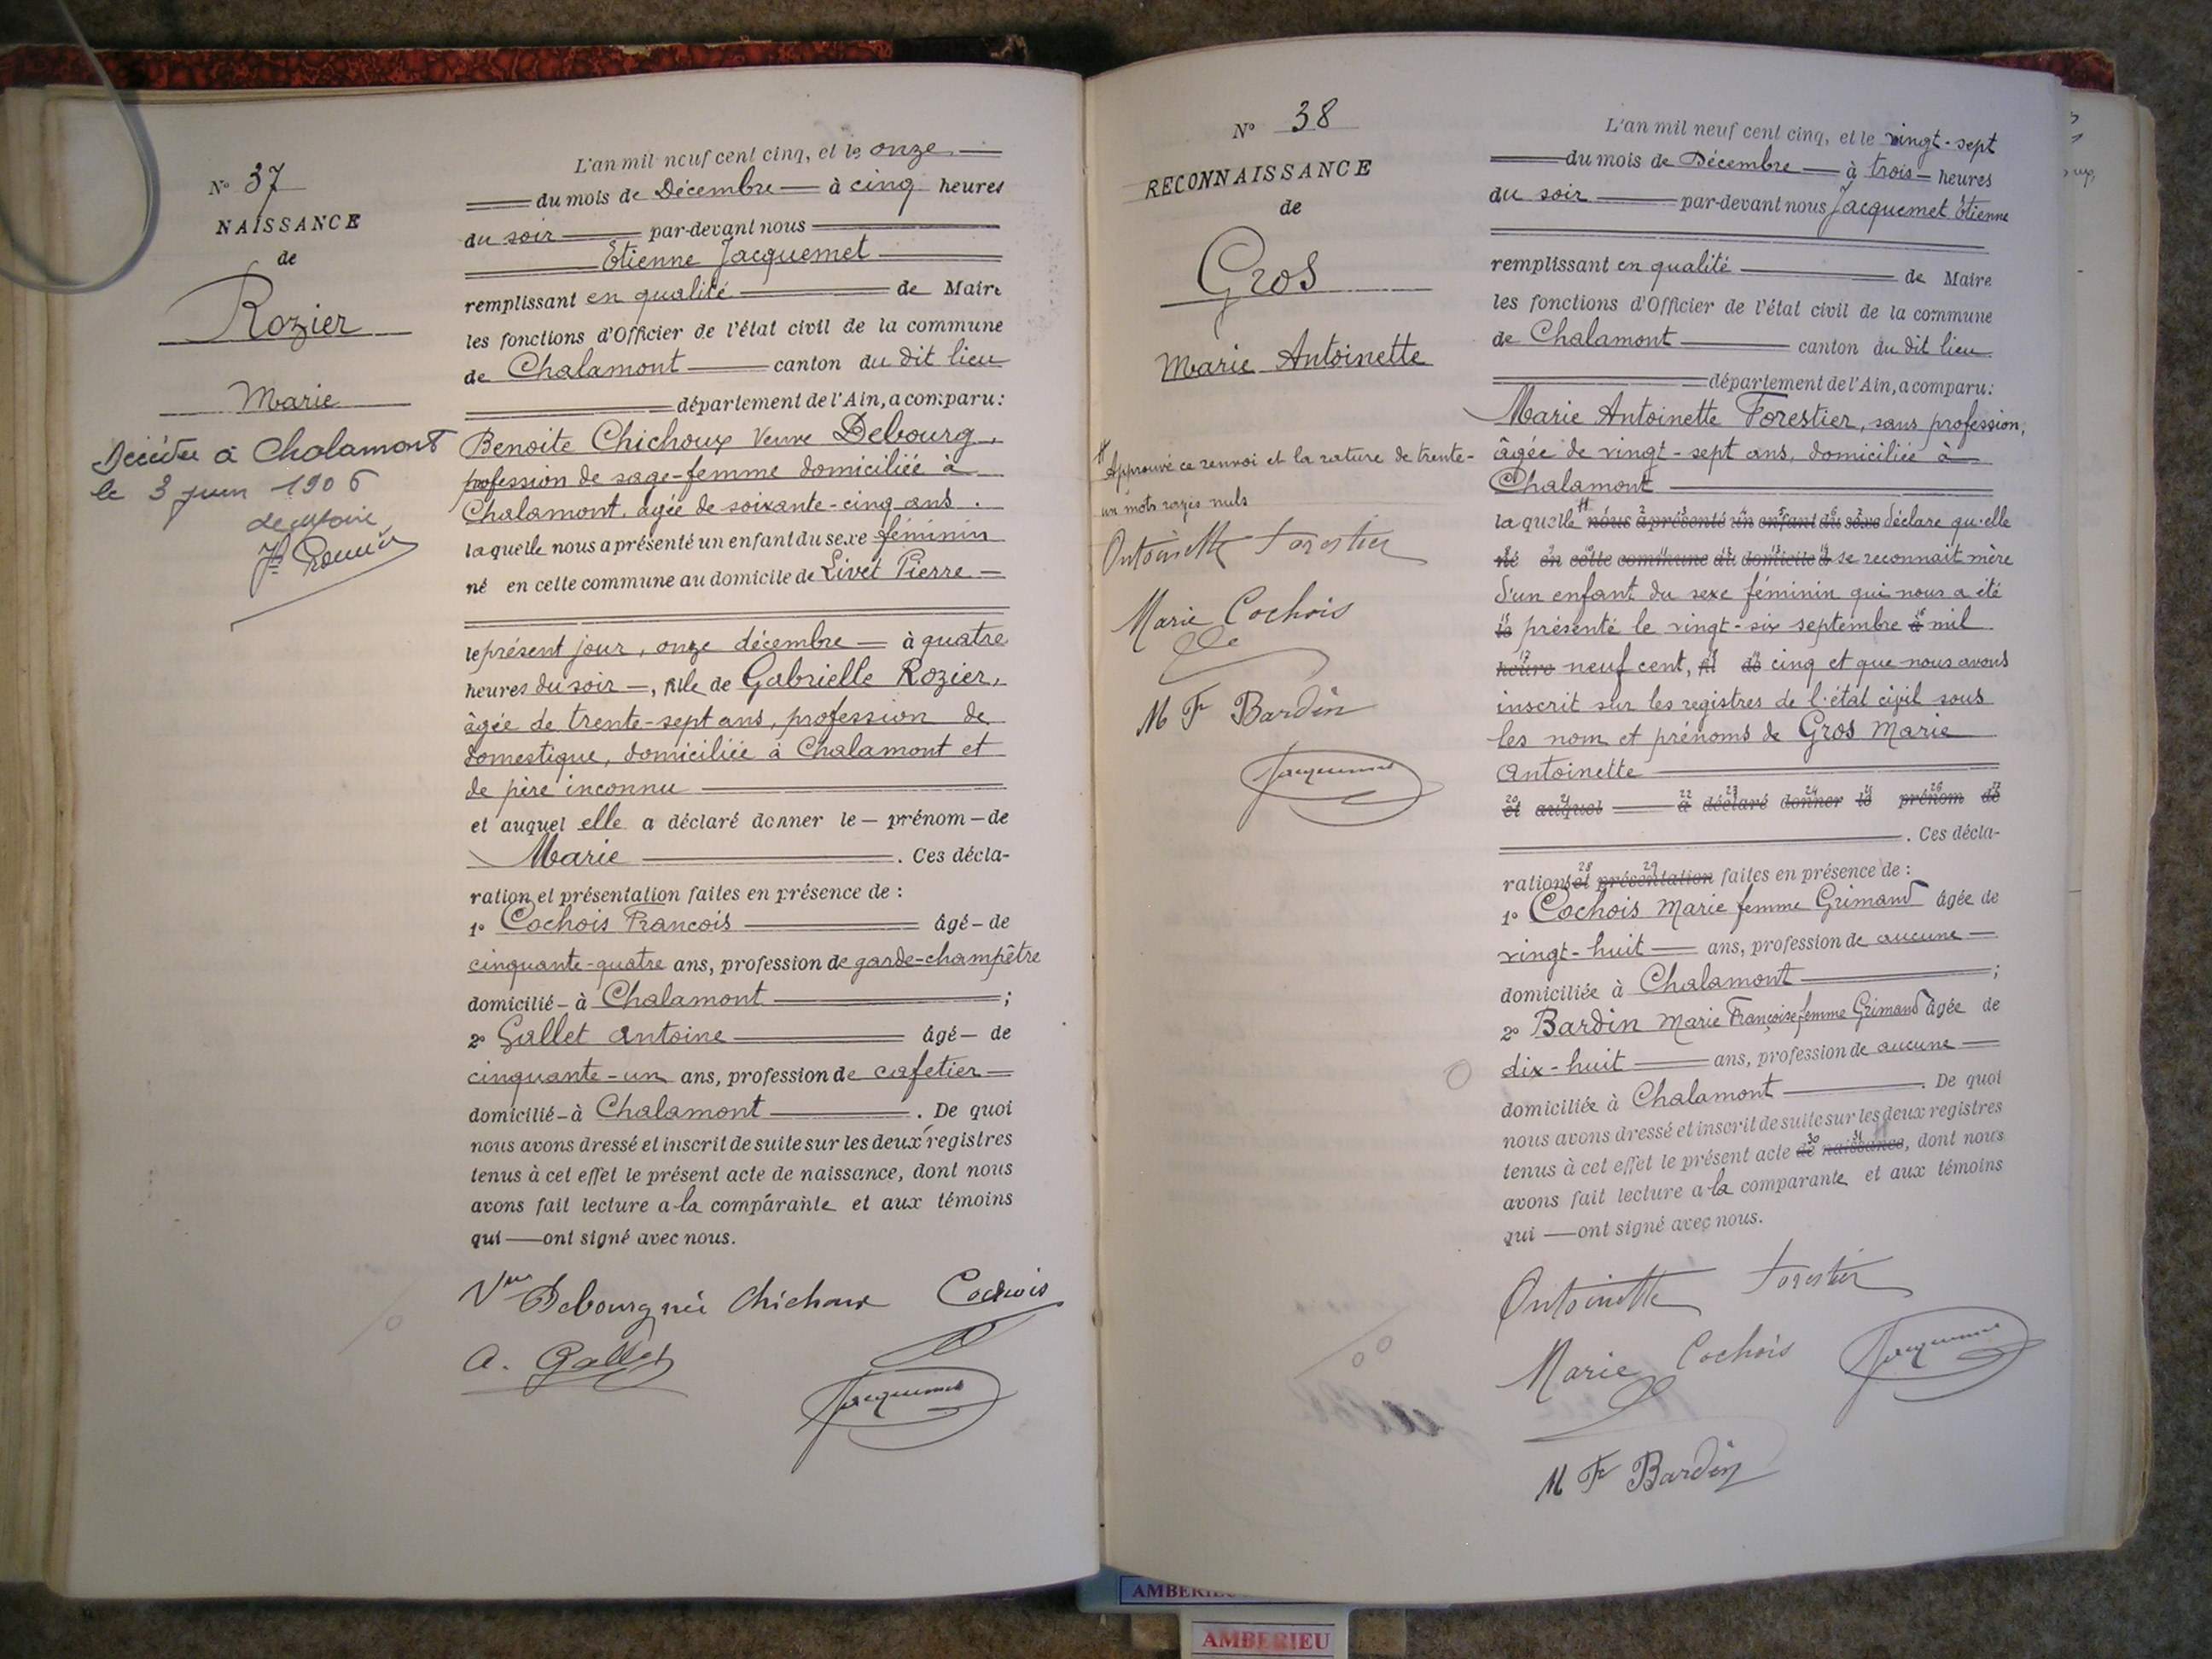 N° 37
NAISSANCE
de
Rozier
Marie
Décédée à Chalamont
le 3 juin 1906
L'an mil neuf cent cinq, et le onze
du mois de Décembre à cinq heures
du soir par-devant nous
Etienne Jacquemet
remplissant en qualité de Maire
les fonctions d'Officier de l'état civil de la commune
de Chalamont canton du dit lieu
département de l'Ain, a comparu :
Benoite Chichoux Veuve Debourg,
profession de sage-femme domiciliée à
Chalamont, agée de soixante-cinq ans.
laquelle nous a présenté un enfant du sexe féminin
né en cette commune au domicile de Livet Pierre
le présent jour, onze décembre à quatre
heures du soir, fille de Gabrielle Rozier,
âgée de trente-sept ans, profession de
domestique, domiciliée à Chalamont et
de père inconnu
et auquel elle a déclaré donner le prénom de
Marie. Ces décla-
ration et présentation faites en présence de :
1° Cochois Francois âgé de
cinquante-quatre ans, profession de garde-champêtre
domicilié à Chalamont ;
2° Gallet Antoine âgé de
cinquante-un ans, profession de cafetier
domicilié à Chalamont. De quoi
nous avons dressé et inscrit de suite sur les deux registres
tenus à cet effet le présent acte de naissance, dont nous
avons fait lecture a la comparante et aux témoins
qui ont signé avec nous.
Vve Debourg née Chichoux Cochois
A. Gallet Jacquemet
N° 38
RECONNAISSANCE
de
Gros
Marie Antoinette
# Approuvé ce renvoi et la rature de trente-
un mots rayés nuls
Antoinette Forestier
Marie Cochois
M F Bardin
Jacquemet
L'an mil neuf cent cinq, et le vingt-sept
du mois de Décembre à trois heures
du soir par-devant nous Jacquemet Etienne
remplissant en qualité de Maire
les fonctions d'Officier de l'état civil de la commune
de Chalamont canton du dit lieu
département de l'Ain, a comparu :
Marie Antoinette Forestier, sans profession,
âgée de vingt-sept ans, domiciliée à
Chalamont
laquelle # nous a présenté un enfant du sexe déclare qu'elle
né en cette commune au domicile d se reconnait mère
d'un enfant du sexe féminin qui nous a été
le présenté le vingt-six septembre à mil
heure neuf cent, fil de cinq et que nous avons
inscrit sur les registres de l'état civil sous
les nom et prénoms de Gros Marie
Antoinette
et auquel a déclaré donner le prénom de
. Ces décla-
rations et présentation faites en présence de :
1° Cochois Marie femme Grimand âgée de
vingt-huit ans, profession de aucune
domiciliée à Chalamont ;
2° Bardin Marie Françoise femme Grimand âgée de
dix-huit ans, profession de aucune
domiciliée à Chalamont. De quoi
nous avons dressé et inscrit de suite sur les deux registres
tenus à cet effet le présent acte de naissance, dont nous
avons fait lecture a la comparante et aux témoins
qui ont signé avec nous.
Antoinette Forestier
Marie Cochois Jacquemet
M F Bardin
AMBERIEU
AMBERIEU